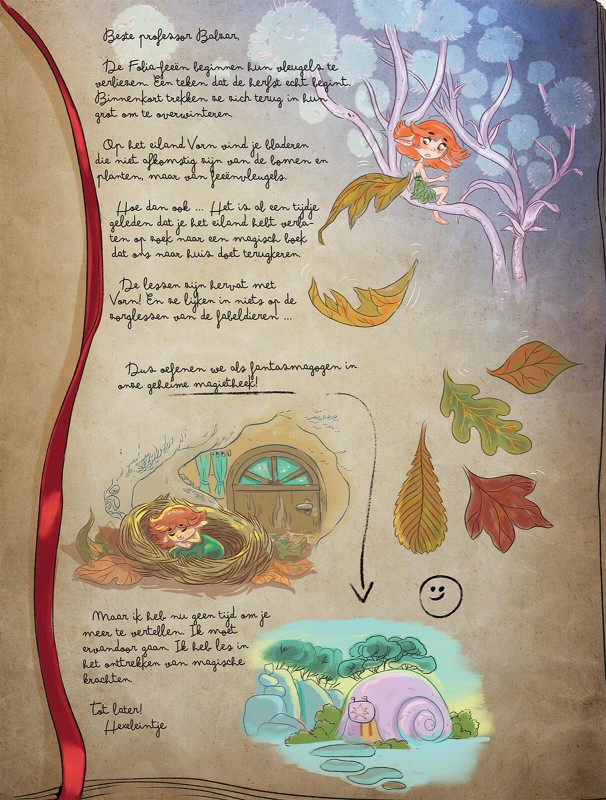 Beste professor Balzar,
De Folia-feeën beginnen hun vleugels te
verliezen. Een teken dat de herfst echt begint.
Binnenkort trekken ze zich terug in hun
grot om te overwinteren.
Op het eiland Vorn vind je bladeren
die niet afkomstig zijn van de bomen en
planten, maar van feeënvleugels.
Hoe dan ook ... Het is al een tijdje
geleden dat je het eiland hebt verla-
ten op zoek naar een magisch boek
dat ons naar huis doet terugkeren.
De lessen zijn hervat met
Vorn! En ze lijken in niets op de
zorglessen van de fabeldieren ...
Dus oefenen we als fantasmagogen in
onze geheime magietheek!
Maar ik heb nu geen tijd om je
meer te vertellen. Ik moet
ervandoor gaan. Ik heb les in
het ontrekken van magische
krachten.
Tot later!
Hexeleintje